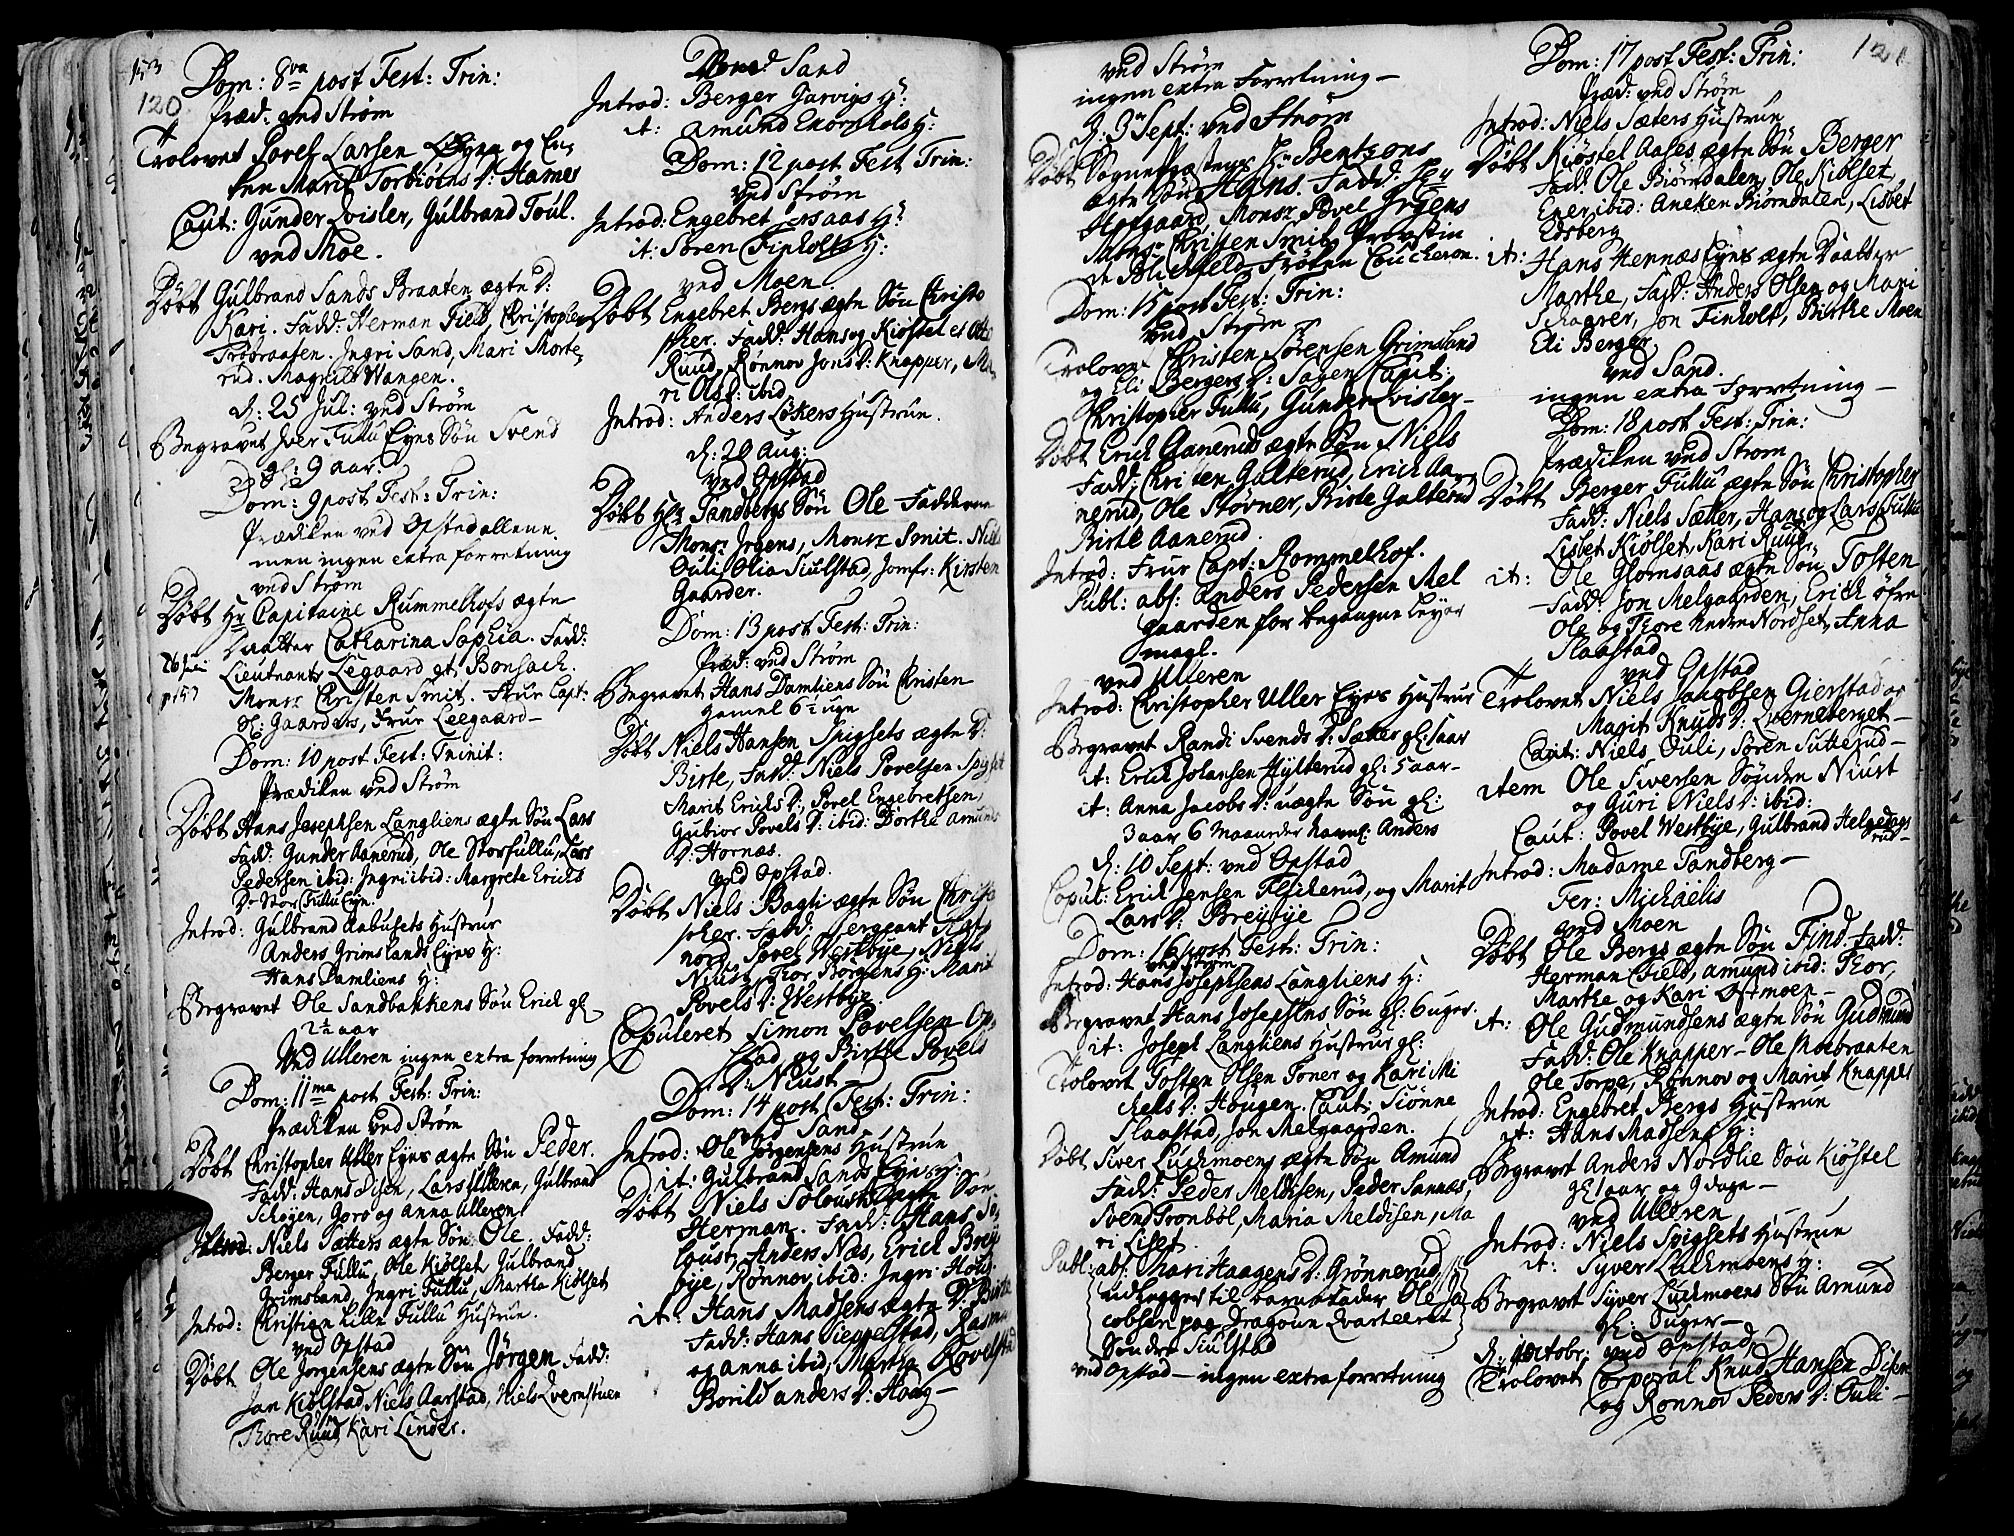 153
120
Dom: 8va post Fest: Trin:
Præd: ved Strøm
Trolovet Povel Larsen og En
ken Marit Torbiøens D: Hames
Caut: Gunder Qvisler, Gulbrand Toul.
ved Moe.
Døbt Gulbrand Sands Braaten ægte D:
Kari. Fadd: Herman Field, Christopher
Trøbraaten. Ingri Sand, Mari Morte
rud. Magnild Wangen.
d: 25 Jul: ved Strøm
Begravet Iver Fullu Eyes Søn Svend
gl: 9 aar.
Dom: 9 post Fest: Trin:
Prædiken ved Opstad allene
men ingen extra forretning
ved Strøm
Døbt Hr Capitaine Rummelhofs ægte
Daatter Catharina Sophia. Fadd:
Lieutnants Leegaard et Bonsach.
Monsr Christen Smit. Frue Capt:
Sl: Gaarders, Frue Leegaard
Dom: 10 post Fest: Trinit:
Prædiken ved Strøm
Døbt Hans Josephsen Langliens ægte Søn Lars
Fadd: Gunder Aanerud, Ole Storfullu, Lars
Pedersen ibid: Ingri ibid: Margrete Erichs
Dr Stor Fullu Eye.
Introd: Gulbrand Aabusets Hustrue
Anders Grimslands Eyes H:
Hans Damliens H:
Begravet Ole Sandbakkens Søn Erich gl
2½ aar
Ved Ulleren ingen extra forretning
Dom: 11ma post Fest: Trin:
Prædiken ved Strøm
Døbt Christopher Uller Eyes ægte Søn Peder.
Fadd: Hans Disen, Lars Ulleren, Gulbrand
Schøyen, Goro og Anna Ulleren
Niels Sætters ægte Søn Ole. Fadd:
Berger Fullu, Ole Kiølset, Gulbrand
Grimsland, Ingri Fullu, Martha Kiølset
Introd: Christian Lille Fullu Hustrue.
ved Opstad
Døbt Ole Jørgensens ægte Søn Jørgen Fadd:
Jan Kiølstad, Niels Aarstad, Niels Qvernstuen
Thore Ruud, Kari Linder.
ved Sand
Introd: Berger Garvigs H:
it: Amund Ekornhols H:
Dom: 12 post Fest Trin:
ved Strøm
Introd: Engebret H:
it: Søren Finholts H:
ved Moen
Døbt Engebret Bergs ægte Søn Christo
pher. Fadd: Hans og Kiøstel et Ole
Ruud, Rønnov Jons D: Knapper, Ma
ri Ols D: ibid
Introd: Anders Løkers Hustrue.
d: 20 Aug:
ved Opstad
Døbt Hr Tandbergs Søn Ole Faddere
Monsr Jrgens, Monsr Smit. Niels
Ouli, Olia Siulstad, Jomfr: Kirsten
Gaarder.
Dom: 13 post Fest: Trin:
Præd: ved Strøm
Begravet Hans Damliens Søn Christen
gamel 6½ uge
Døbt Niels Hansen Spigsets ægte D:
Birte, Fadd: Niels Povelsen Spigset
Marit Erichs D: Povel Engebretsen,
Gubior Povels D: ibid: Dorthe Amunds
D: Hornæs.
ved Opstad.
Døbt Niels Bagli ægte Søn Christo
pher. Fadd: Sergeant
nord, Povel Westbye, Niels
Niust, Thor Borgens H: Marit
Povels D: Westbye.
Copuleret Simon Povelsen Op
stad, og Birthe Povels
D: Niust
Dom: 14 post Fest: Trin:
ved Sand
Introd: Ole Jørgensens Hustrue
it: Gulbrand Sands Eyes H:
Døbt Niels ægte Søn
Herman. Fadd: Hans
Anders Næs, Erich Brey
bye, Rønnov ibid: Ingri
it: Hans Madsens ægte D: Birte
Fadd: Hans Siegelstad, Rasmus
og Anna ibid, Martha Rovelstad
Borild Anders D: Haag
121
ved Strøm
ingen extra Forretning
d: 3 Sept: ved Strøm
Døbt Sognepræstens Hr Bentzons
ægte Søn Hans. Fadd: Hr
Hofgaard, Monsr Povel Jrgens
Monsr Christen Smit, Provstin
de Blichfeld, Frøken Coucheron.
Dom: 15 post Fest: Trin:
ved Strøm
Trolovet Christen Sørensen Grimsland
og Eli Bergers D: Sagen Caut:
Christopher Fullu, Gunder Qvisler
Døbt Erich Aanerud ægte Søn Niels
Fadd: Christen Galterud, Erich Aa
nerud, Ole Støvner, Birte Galterud
Birte Aanerud.
Introd: Frue Capt: Rommelhof.
Publ: abs: Anders Pedersen Mel
gaarden for begangne Leyer
maal.
ved Ulleren
Introd: Christopher Uller Eyes Hustrue
Begravet Randi Svends D: Sætter gl: 1 aar
it: Erich Johansen Hylterud gl: 5 aar
it: Anna Jacobs D: uægte Søn gl:
3 aar 6 Maaneder havn: Anders
d: 10 Sept: ved Opstad
Copul: Erich Jensen, og Marit
Lars D: Breybye
Dom: 16 post Fest: Trin:
ved Strøm
Introd: Hans Josephsens Langliens H:
Begravet Hans Josephsens Søn gl: 6 uger.
it: Joseph Langliens Hustrue gl:
Trolovet Tosten Olsen Toner og Kari Mi
chels D: Hougen. Caut: Siønne
Slaastad, Jon Melgaarden.
Døbt Siver Luchmoens ægte Søn Amund
Fadd: Peder Meldisen, Peder Sannæs,
Svend Tronbøl, Maria Meldisen, Ma
ri Liset.
Publ: abs: Mari Haagens D: Grønnerud
udlegger til barnefader Ole Ja
cobsen paa Dragoun Qvarteeret
Søndre Siulstad
ved Opstad — ingen extra forretning
Dom: 17 post Fest: Trin:
Præd: ved Strøm
Introd: Niels Sæters Hustrue
Døbt Kiøstel Aases ægte Søn Berger
Fadd: Ole Biørndalen, Ole Kiølset,
Ener ibid: Aneken Biørndalen, Lisbet
Edsberg
it: Hans Hennæs Eyes ægte Daatter
Marthe, Fadd: Anders Olsen og Mari
Schaarer, Jon Finholt, Birthe Moen
Eli Berger.
ved Sand.
ingen extra Forretning
Dom: 18 post Fest: Trin:
Prædiken ved Strøm
Døbt Berger Fullu ægte Søn Christopher
Fadd: Niels Sætter, Hans og Lars Fullu
Lisbet Kiølset, Kari Ruud,
it: Ole Glomsaas ægte Søn Tosten
Fadd: Jon Melgaarden, Erich øfre
Ole og Thore nedre Nordset, Anna
Slaastad
ved Opstad
Trolovet Niels Jacobsen Gierstad og
Marit Knuds D: Qverneberget
Caut: Niels Ouli, Søren Sutterud
item Ole Siversen Søndre Niust
og Guri Niels D: ibid:
Caut: Povel Westbye, Gulbrand Helgedags
rud
Introd: Madame Tandberg
Fer: Michaelis
ved Moen
Døbt Ole Bergs ægte Søn Find. Fadd:
Herman Field, Amund ibid: Thor,
Marthe og Kari Ostmoen
it: Ole Gudmundsens ægte Søn Gudmund
Fadd: Ole Knapper — Ole Moebraaten
Ole Torpe, Rønnov og Marit Knapper
Introd: Engebret Bergs Hustrue
it: Hans Madsens H:
Begravet Anders Nordlie Søn Kiøstel
gl: 1 aar og 9 dage
ved Ulleren
Introd: Niels Spigsets Hustrue
it: Syver Luchmoens H:
Begravet Syver Luchmoens Søn Amund
gl: 5 uger
d: 1 Octobr: ved Opstad
Trolovet Corporal Knud Hansen Disen
og Rønnov Peders D: Ouli